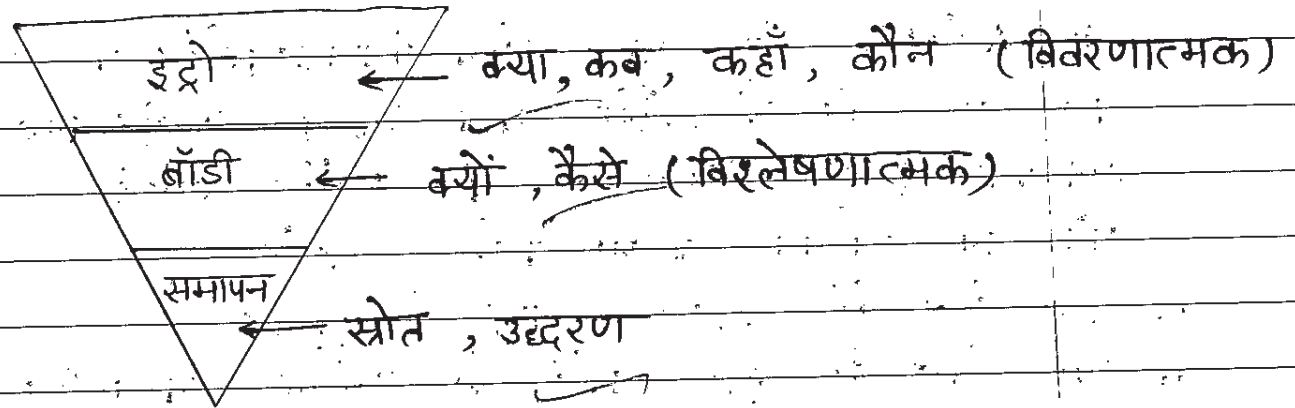 इंट्रो ← क्या, कब, कहाँ, कौन (विवरणात्मक)
बॉडी ← क्यों, कैसे (विश्लेषणात्मक)
समापन ← स्रोत, उद्धरण